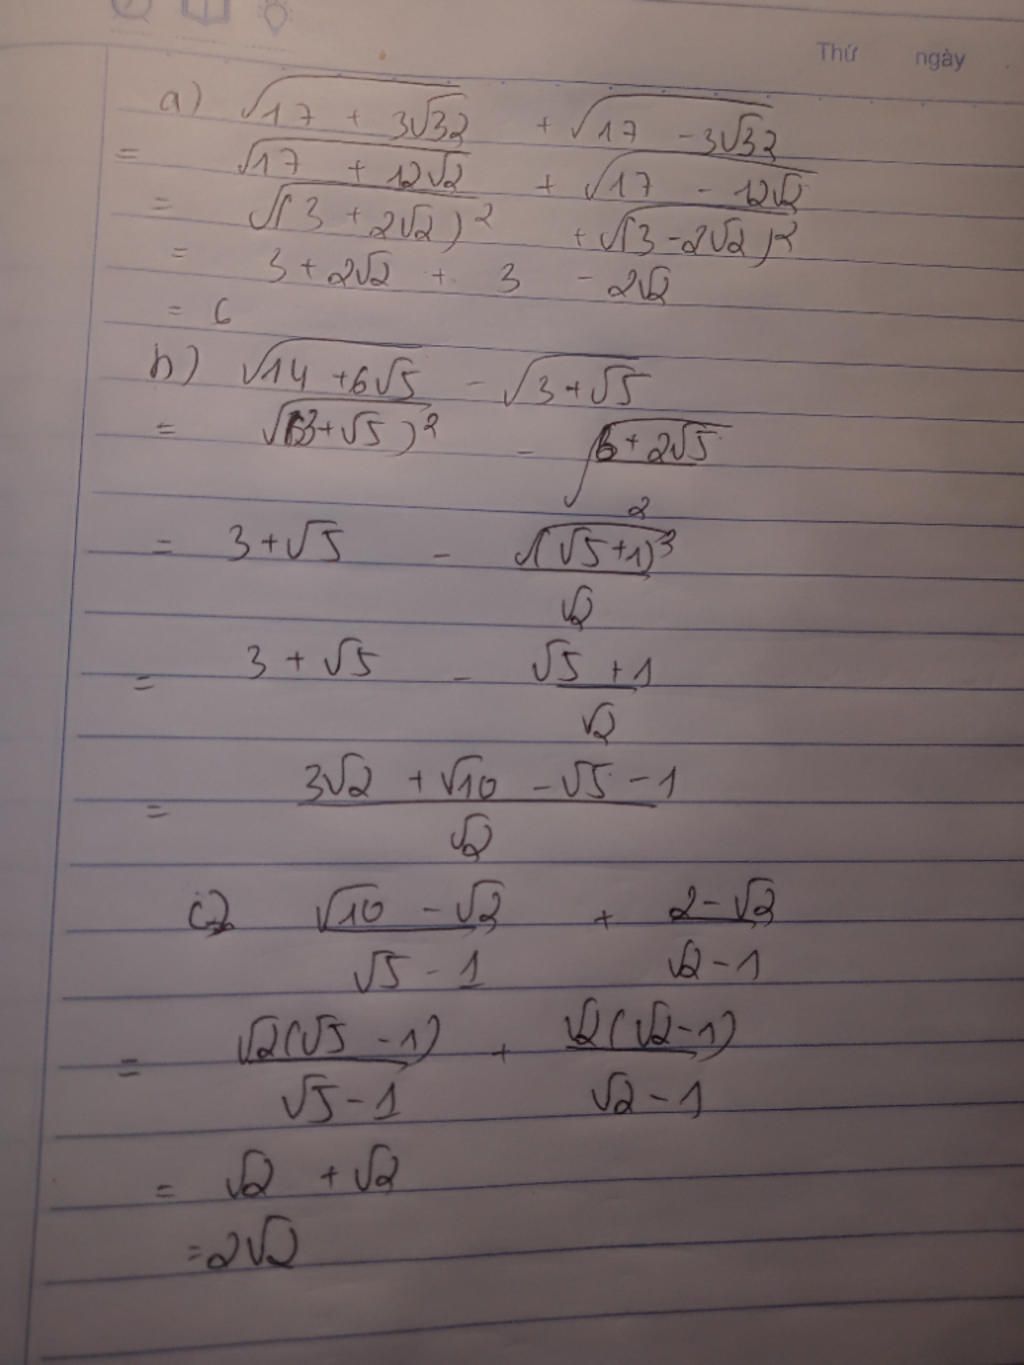 Thứ ngày
a) √(17 + 3√32) + √(17 - 3√32)
= √(17 + 12√2) + √(17 - 12√2)
= √((3 + 2√2)²) + √((3 - 2√2)²)
= 3 + 2√2 + 3 - 2√2
= 6
b) √(14 + 6√5) - √(3 + √5)
= √((3 + √5)²) - √((6 + 2√5)/2)
= 3 + √5 - √((√5 + 1)²)/√2
= 3 + √5 - (√5 + 1)/√2
= (3√2 + √10 - √5 - 1)/√2
c) (√10 - √2)/(√5 - 1) + (2 - √2)/(√2 - 1)
= √2(√5 - 1)/(√5 - 1) + √2(√2 - 1)/(√2 - 1)
= √2 + √2
= 2√2